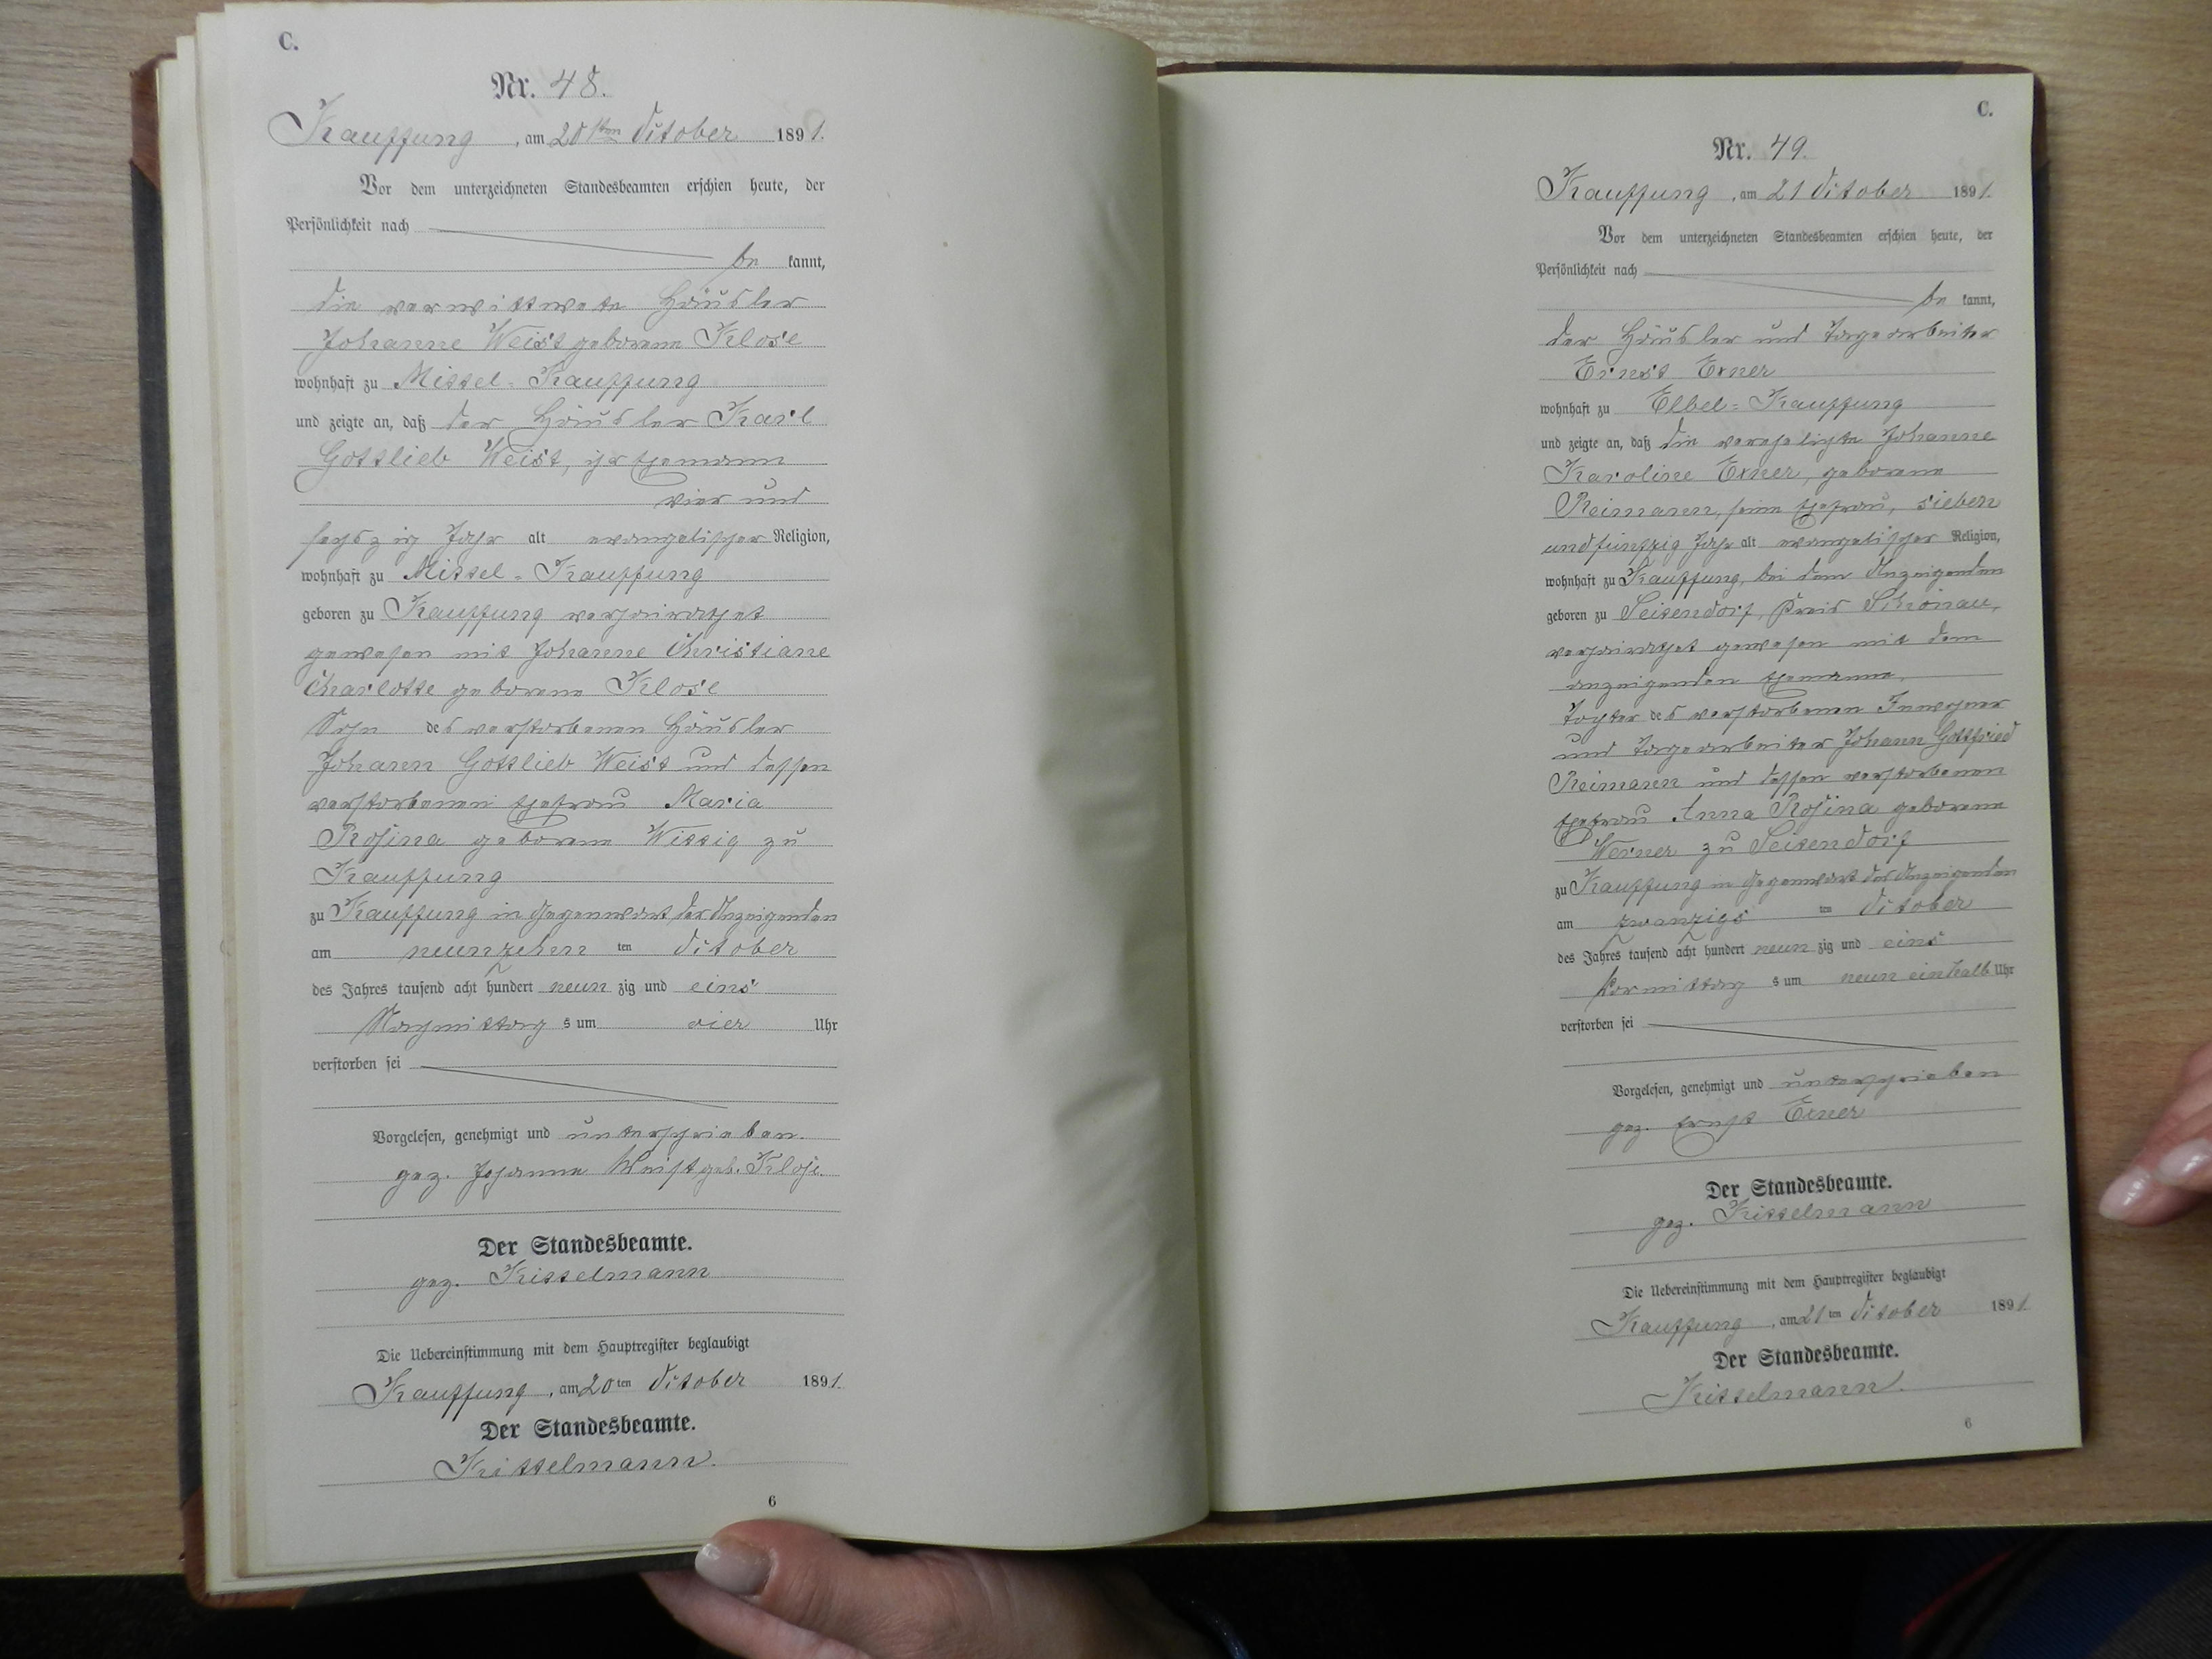 C.
Nr. 48.
Kauffung, am 20sten October 1891.
Vor dem unterzeichneten Standesbeamten erschien heute, der
Persönlichkeit nach
be kannt,
die verwittwete Häusler
Johanne Weist geborene Klose
wohnhaft zu Mittel-Kauffung
und zeigte an, daß der Häusler Karl
Gottlieb Weist, ihr Ehemann
vier und
sechszig Jahr alt evangelischer Religion,
wohnhaft zu Mittel-Kauffung
geboren zu Kauffung verheirathet
gewesen mit Johanne Christiane
Charlotte geborene Klose
Sohn des verstorbenen Häusler
Johann Gottlieb Weist und dessen
verstorbenen Ehefrau Maria
Rosina geborene Wittig zu
Kauffung
zu Kauffung in Gegenwart der Anzeigenden
am neunzehn ten October
des Jahres tausend acht hundert neun zig und eins
Nachmittag s um vier Uhr
verstorben sei
Vorgelesen, genehmigt und unterschrieben.
gez. Johanne Weist geb. Klose.
Der Standesbeamte.
gez. Kittelmann
Die Uebereinstimmung mit dem Hauptregister beglaubigt
Kauffung, am 20ten October 1891.
Der Standesbeamte.
Kittelmann.
6
C.
Nr. 49.
Kauffung, am 21 October 1891.
Vor dem unterzeichneten Standesbeamten erschien heute, der
Persönlichkeit nach
be kannt,
der Häusler und Tagearbeiter
Ernst Exner
wohnhaft zu Elbel-Kauffung
und zeigte an, daß die verehelichte Johanne
Karoline Exner, geborene
Reimann, seine Ehefrau, sieben
und fünfzig Jahr alt evangelischer Religion,
wohnhaft zu Kauffung, bei dem Anzeigenden
geboren zu Seitendorf, Kreis Schönau,
verheirathet gewesen mit dem
anzeigenden Ehemanne,
Tochter des verstorbenen Inwohner
und Tagearbeiter Johann Gottfried
Reimann und dessen verstorbenen
Ehefrau Anna Rosina geborene
Werner zu Seitendorf
zu Kauffung in Gegenwart des Anzeigenden
am zwanzigs ten October
des Jahres tausend acht hundert neun zig und eins
Vormittag s um neun einhalb Uhr
verstorben sei
Vorgelesen, genehmigt und unterschrieben
gez. Ernst Exner
Der Standesbeamte.
gez. Kittelmann
Die Uebereinstimmung mit dem Hauptregister beglaubigt
Kauffung, am 21ten October 1891.
Der Standesbeamte.
Kittelmann.
6